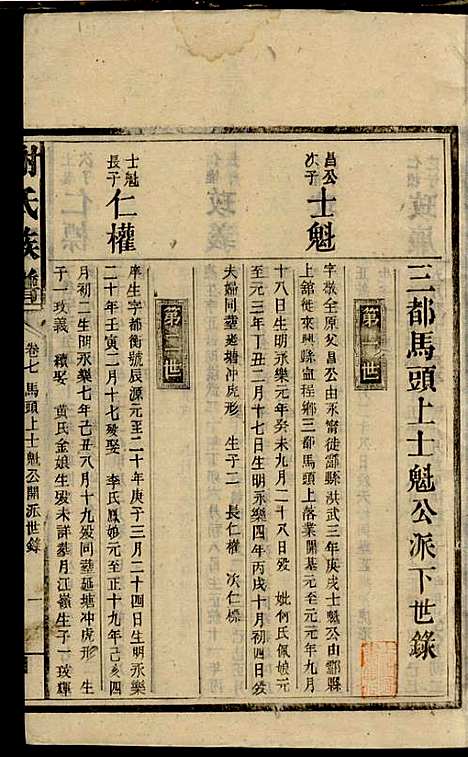 三都馬頭上士魁公派下世錄
第一世
昌公
次子
士魁
字檄全原父昌公由永甯徒酃縣洪武三年庚戌士魁公由酃縣
上館徙來興縣皿程鄉三都馬頭上落業開基元至元元年九月
十八日生明永樂元年癸未九月二十八日歿 妣何氏佩娘元
至元三年丁丑二月十七日生明永樂四年丙戌十月初四日歿
夫婦同塟老塘冲虎形 生子二 長仁權 次仁標
第二世
士魁
長子
仁權
庠生字都衡號辰源元至二十年庚子三月二十四日生明永樂
二十年壬寅二月十七歿娶 李氏鳳娘元至正十九年己亥四
月初二生明永樂七年己丑八月十九歿同塟延塘冲虎形 生
子一政義 續娶 黃氏金娘生歿未詳墓月江嶺生子一政輝
謝氏族譜
卷七 馬頭上士魁公開派世錄
一